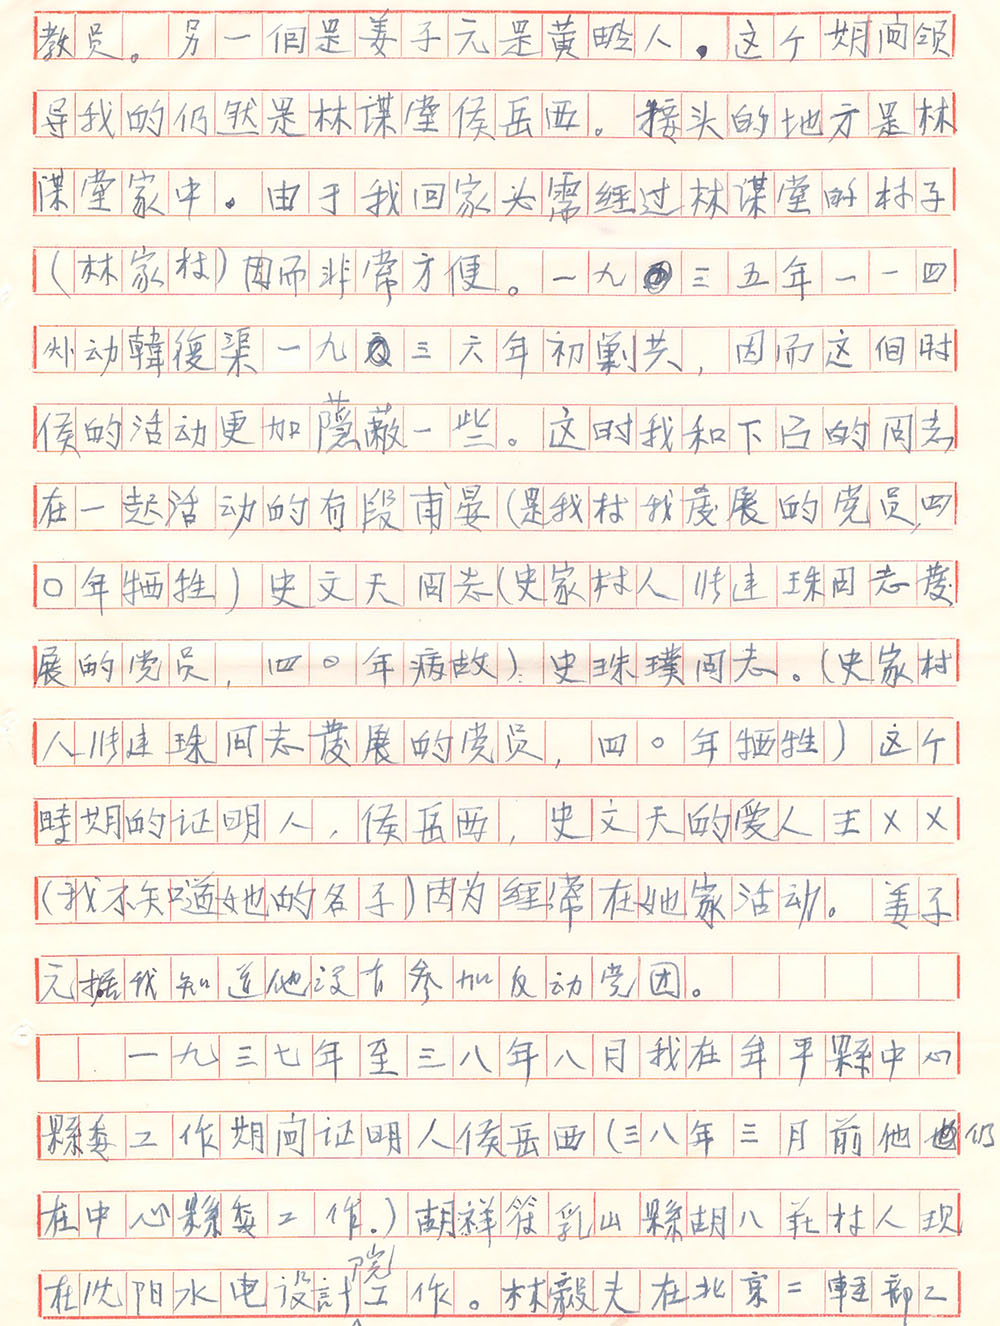 教员。另一個是姜子元是黄疃人。这个期间领
导我的仍然是林谋堂侯岳西。接头的地方是林
谋堂家中。由于我回家必需经过林谋堂的村子
(林家村)因而非常方便。一九三五年一一四
动韓復渠一九三六年初剿共，因而这個时
侯的活动更加隐蔽一些。这时我和下己的同志
在一起活动的有段甫晏(是我村我發展的党员,四
〇年牺牲)史文天同志(史家村人張建珠同志發
展的党员，四〇年病故)史珠璞同志。(史家村
人張建珠同志發展的党员，四〇年牺牲)这个
時期的证明人，侯岳西，史文天的爱人王××
(我不知道她的名子)因为經常在她家活动。姜子
元据我知道他没有参加反动党团。
一九三七年至三八年八月我在牟平縣中心
縣委工作期间证明人侯岳西(三八年三月前他仍
在中心縣委工作.)胡祥符乳山縣胡八庄村人现
在沈阳水电设計院工作。林毅夫在北京二輕部工